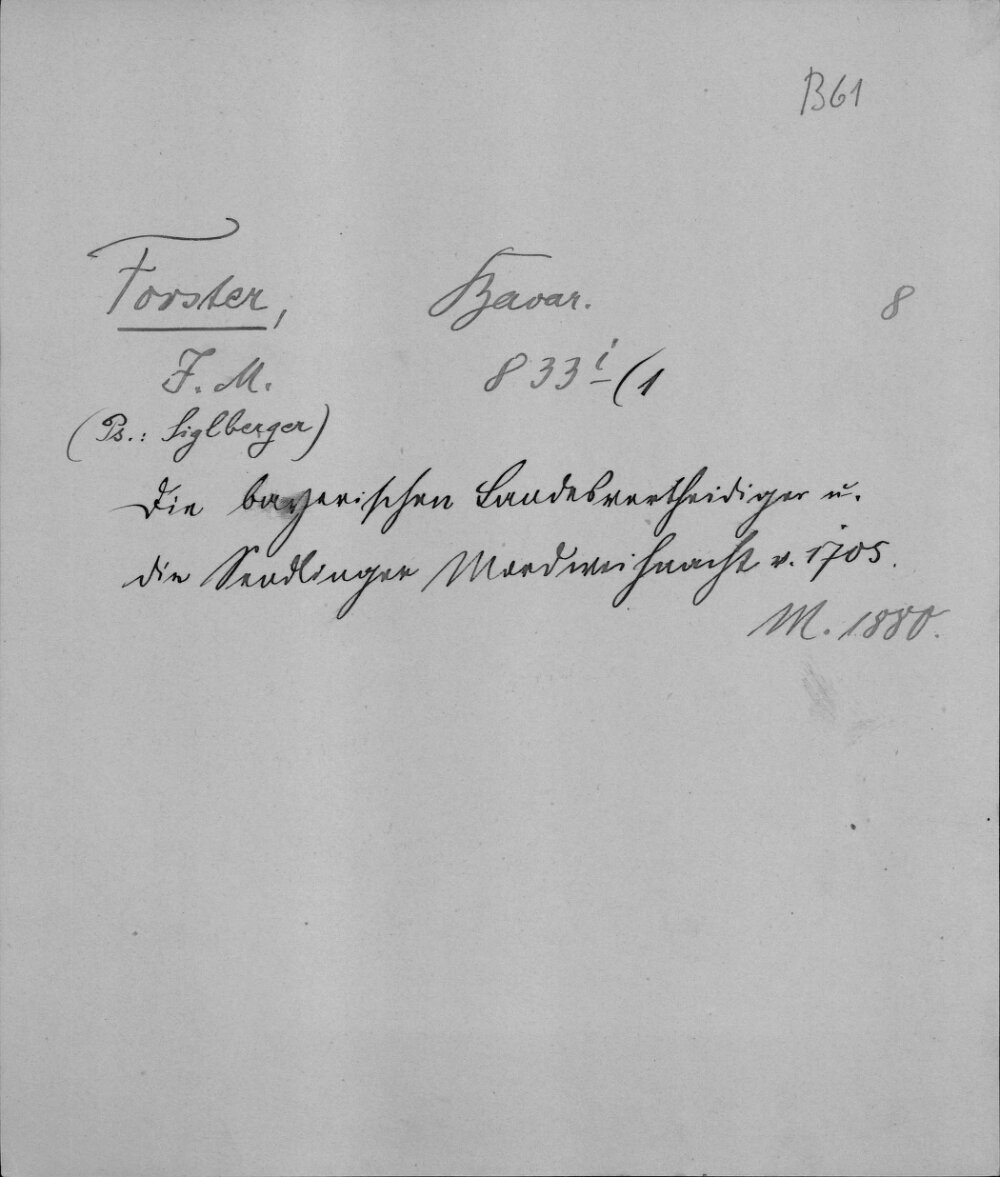 B61
Forster, Bavar. 8
J. M. 833 i (1
(Ps.: Siglberger)
Die bayerischen Landesvertheidiger u.
die Sendlinger Mordweihnacht v. 1705.
M. 1880.